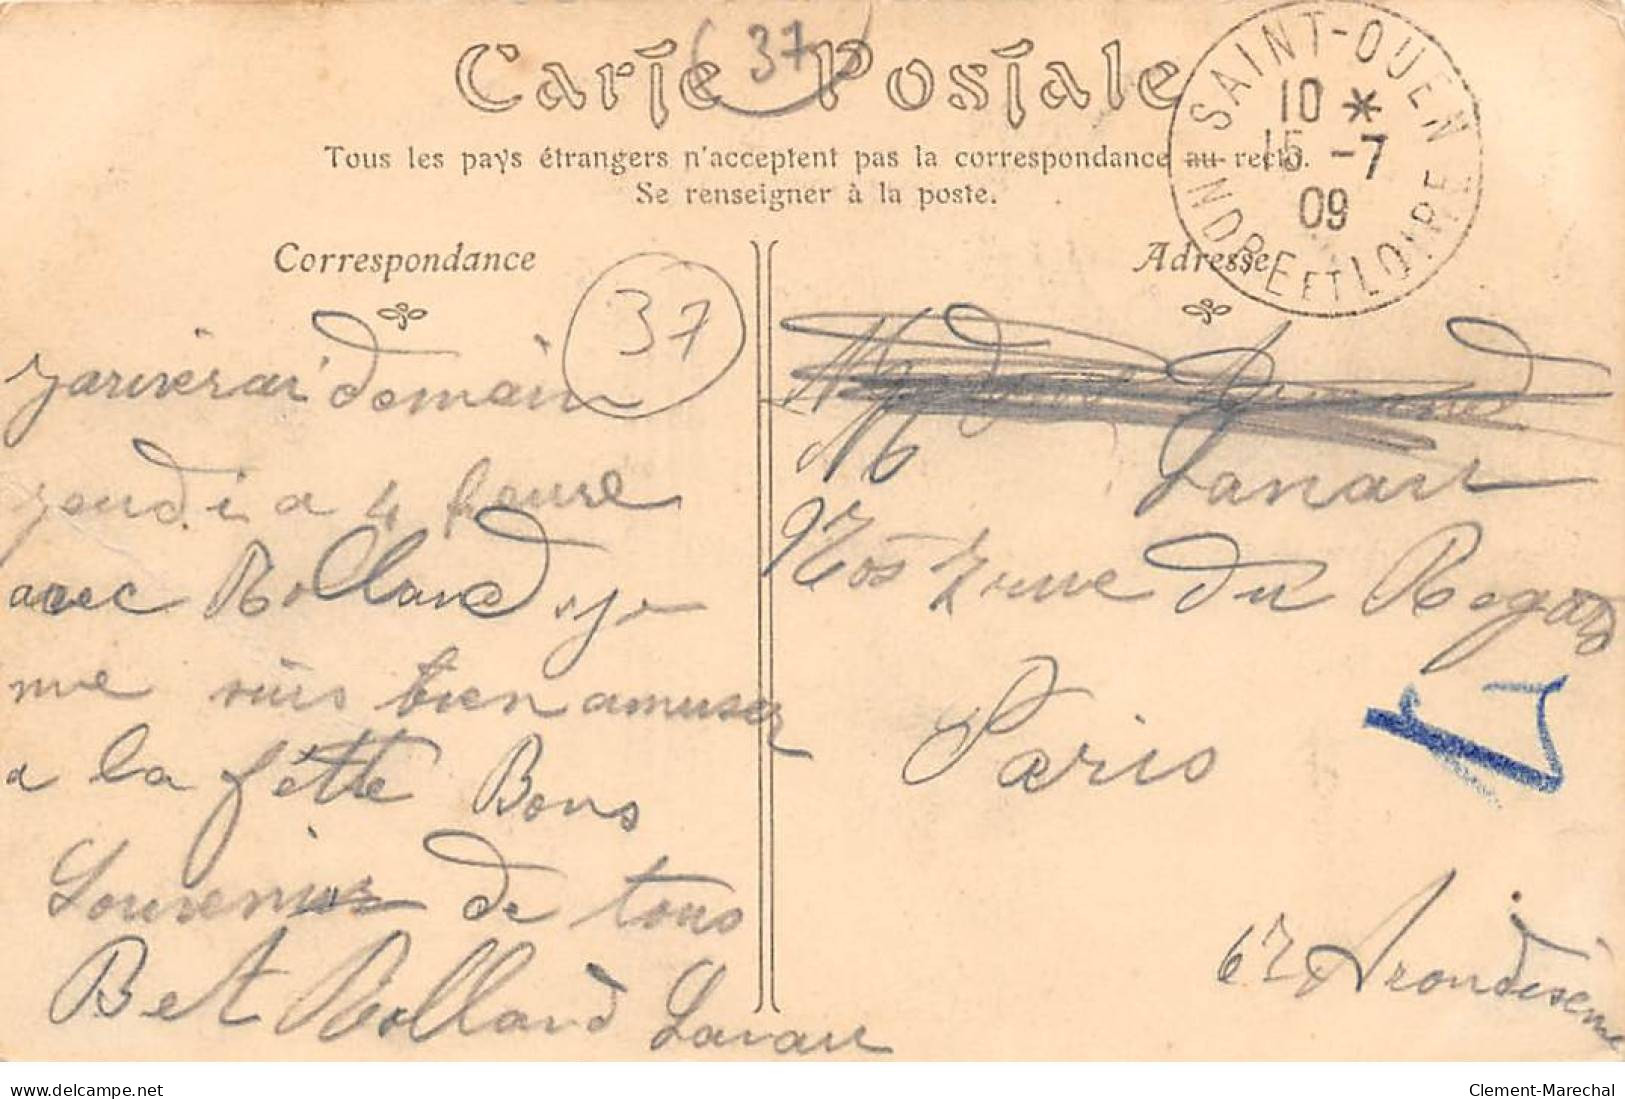 Carte Postale
(37)
Tous les pays étrangers n'acceptent pas la correspondance au recto.
Se renseigner à la poste.
SAINT-OUEN
10 *
15 -7
09
INDRE ET LOIRE
Correspondance
Adresse
37
jariverai demain
jeudi a 4 heure
avec Rolland je
me suis bien amuser
a la fêtte Bons
Souvenirs de tous
B et Rolland Lanau
Lanau
rue du Regard
Paris
6 Arondisème
delcampe.net
Clement-Marechal